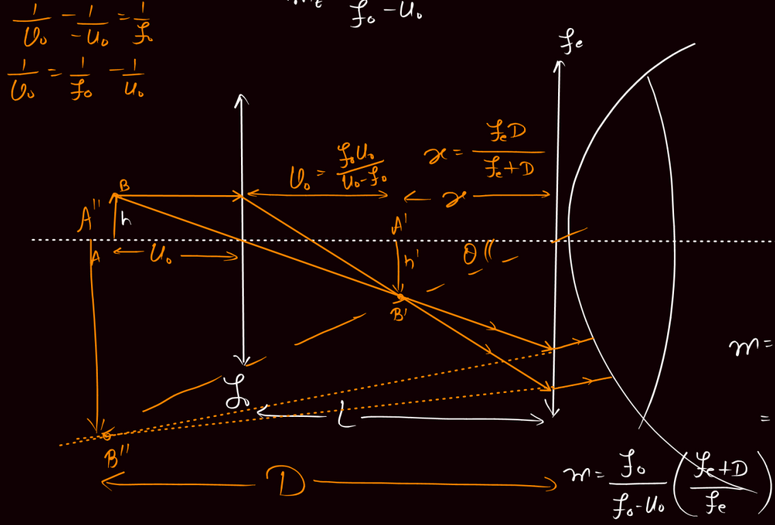 1/v₀ - 1/-u₀ = 1/f₀
1/v₀ = 1/f₀ - 1/u₀
f₀ - u₀
fe
v₀ = f₀u₀/(u₀-f₀)
x = feD/(fe+D)
x
B
A''
h
A
u₀
A'
h'
θ''
B'
f₀
L
B''
D
m =
=
m = f₀/(f₀-u₀) ((fe+D)/fe)